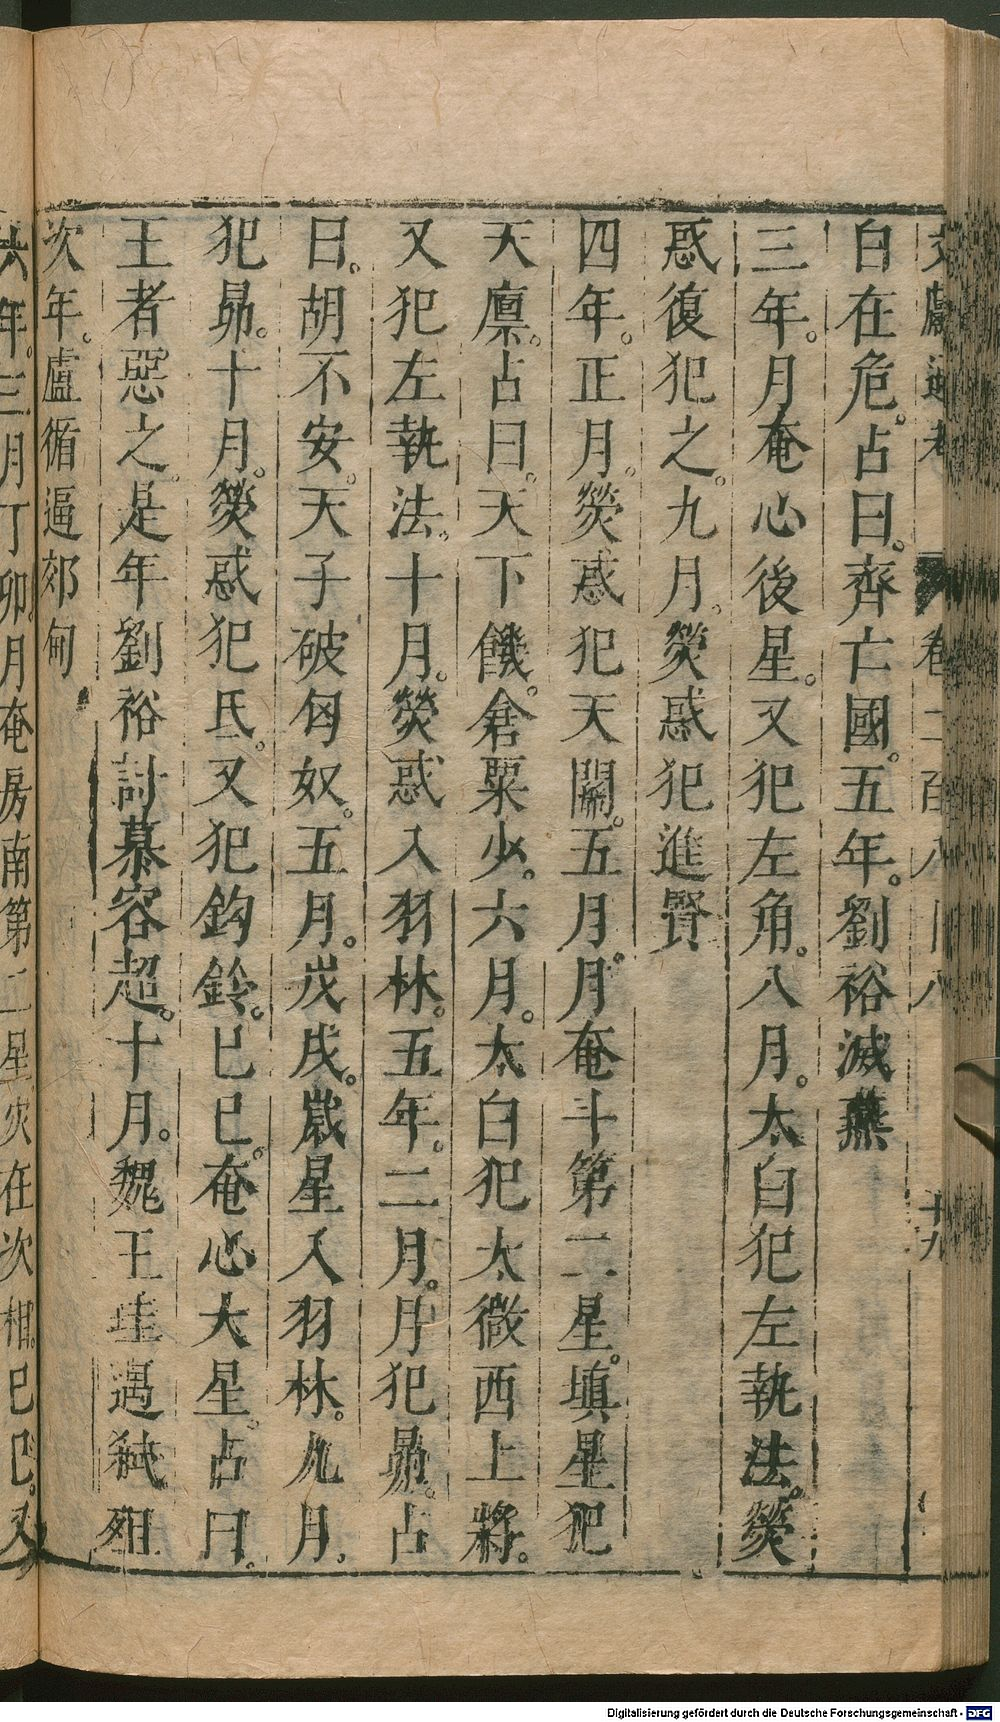 文獻通考 卷二百八十八 十九
白在危。占曰。齊亡國。五年。劉裕滅燕
三年。月奄心後星。又犯左角。八月。太白犯左執法。熒
惑復犯之。九月。熒惑犯進賢
四年。正月。熒惑犯天關。五月。月奄斗第二星。填星犯
天廪。占曰。天下饑。倉粟少。六月。太白犯太微西上將。
又犯左執法。十月。熒惑入羽林。五年。二月。月犯昴。占
曰。胡不安。天子破匈奴。五月。戊戌。歲星入羽林。九月。
犯昴。十月。熒惑犯氐。又犯鈎鈐。己巳。奄心大星。占曰。
王者惡之。是年劉裕討慕容超。十月。魏王珪遇弑殂
次年。盧循逼郊甸
六年。三月丁卯。月奄房南第二星。災在次相。己巳。又
Digitalisierung gefördert durch die Deutsche Forschungsgemeinschaft - DFG